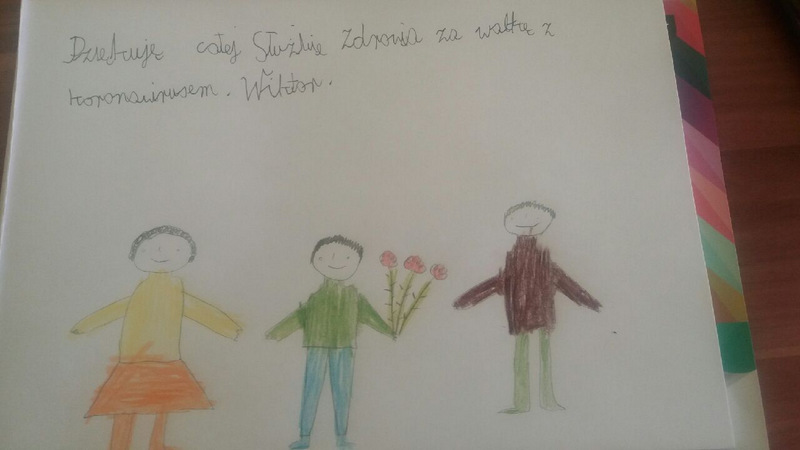 Dziękuję całej Służbie Zdrowia za walkę z
koronawirusem. Wiktor.